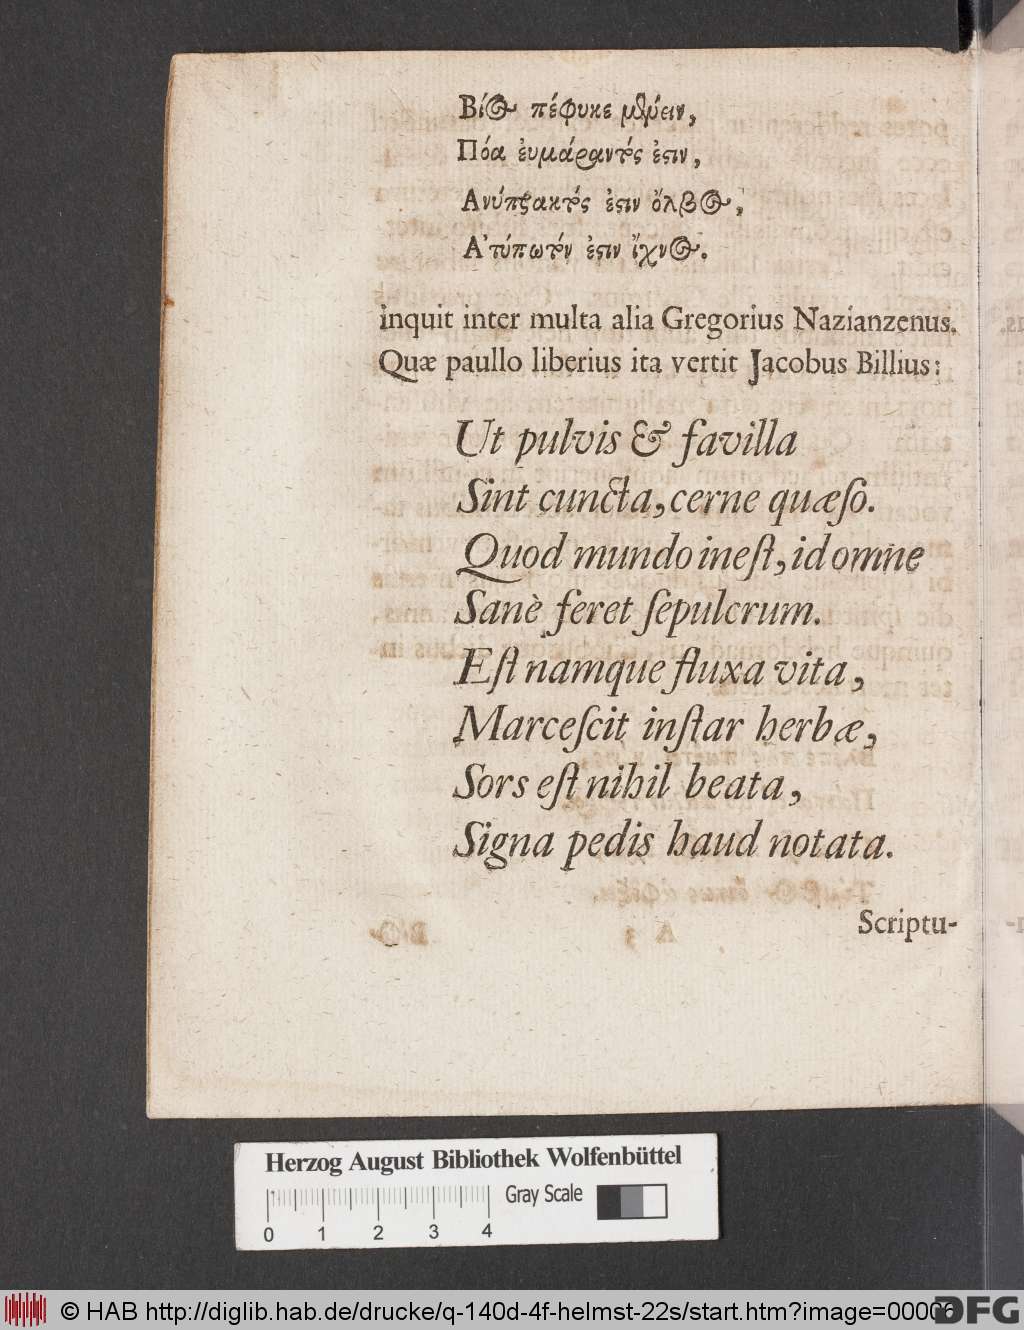 Βίος πέφυκε μύειν,
Πόα ἐυμάραντός ἐστιν,
Ανύπρακτός ἐστιν ὄλβος,
Ἀτύπωτόν ἐστιν ἴχνος.
inquit inter multa alia Gregorius Nazianzenus.
Quæ paullo liberius ita vertit Jacobus Billius:
Ut pulvis & favilla
Sint cuncta, cerne quæſo.
Quod mundo ineſt, id omne
Sanè feret ſepulcrum.
Eſt namque fluxa vita,
Marceſcit inſtar herbæ,
Sors eſt nihil beata,
Signa pedis haud notata.
Scriptu-
Herzog August Bibliothek Wolfenbüttel
Gray Scale
0 1 2 3 4
© HAB http://diglib.hab.de/drucke/q-140d-4f-helmst-22s/start.htm?image=00006
DFG